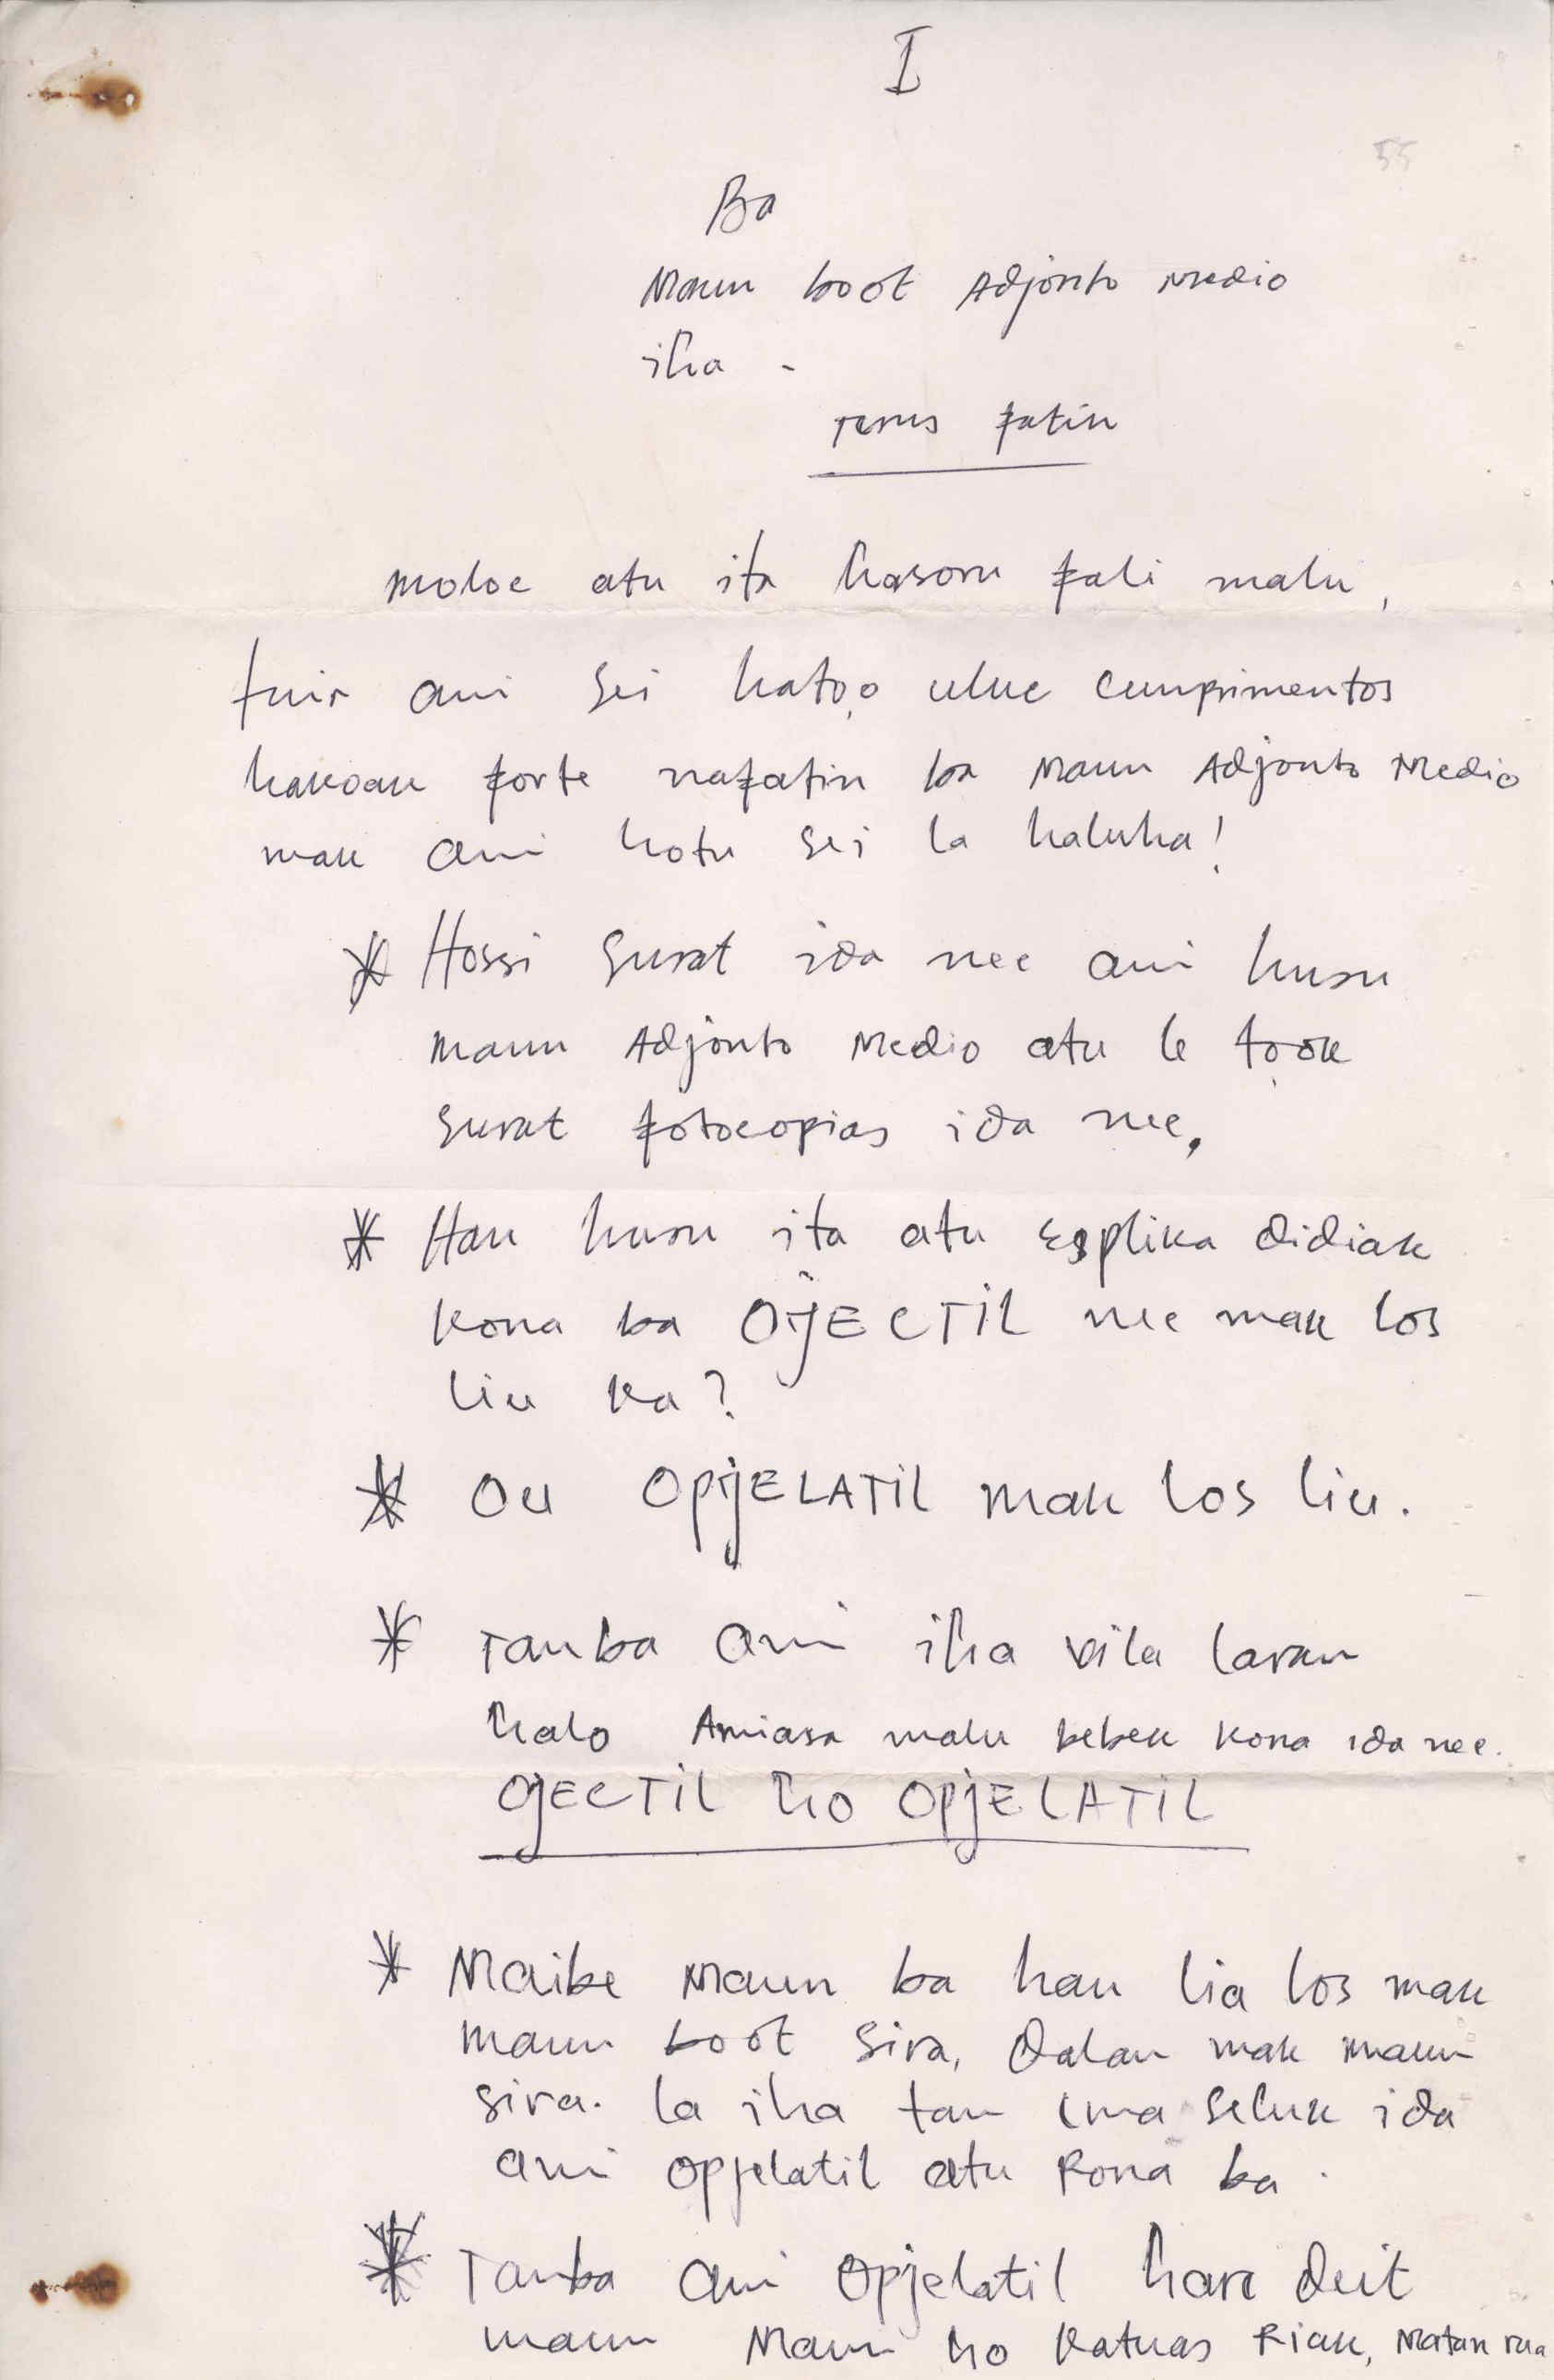 I
55
Ba
Maun boot Adjonto Medio
iha -
Terus fatin
Moloc atu ita hasoru fali malu,
tuir ami sei hato,o uluc cumprimentos
hakoak forte nafatin ba Maun Adjonto Medio
mak ami hotu sei la haluha!
* Hossi Surat ida nee ami husu
maun Adjonto Medio atu le to,ok
Surat fotocopias ida nee,
* Hau husu ita atu Esplika didiak
kona ba OIJECTIL nee mak los
liu ka?
* Ou OPIJELATIL mak los liu.
* Tanba ami iha vila laran
halo Amiasa malu bebek kona ida nee.
OJECTIL ho OPJELATIL
* Maibe Maun ba hau lia los mak
maun boot sira, Dalan mak maun
sira. la iha tan Ema seluk ida
ami opjelatil atu Rona ba.
* Tanba ami Opjelatil hare deit
maun Maun ho Katuas Riak, Matan rua